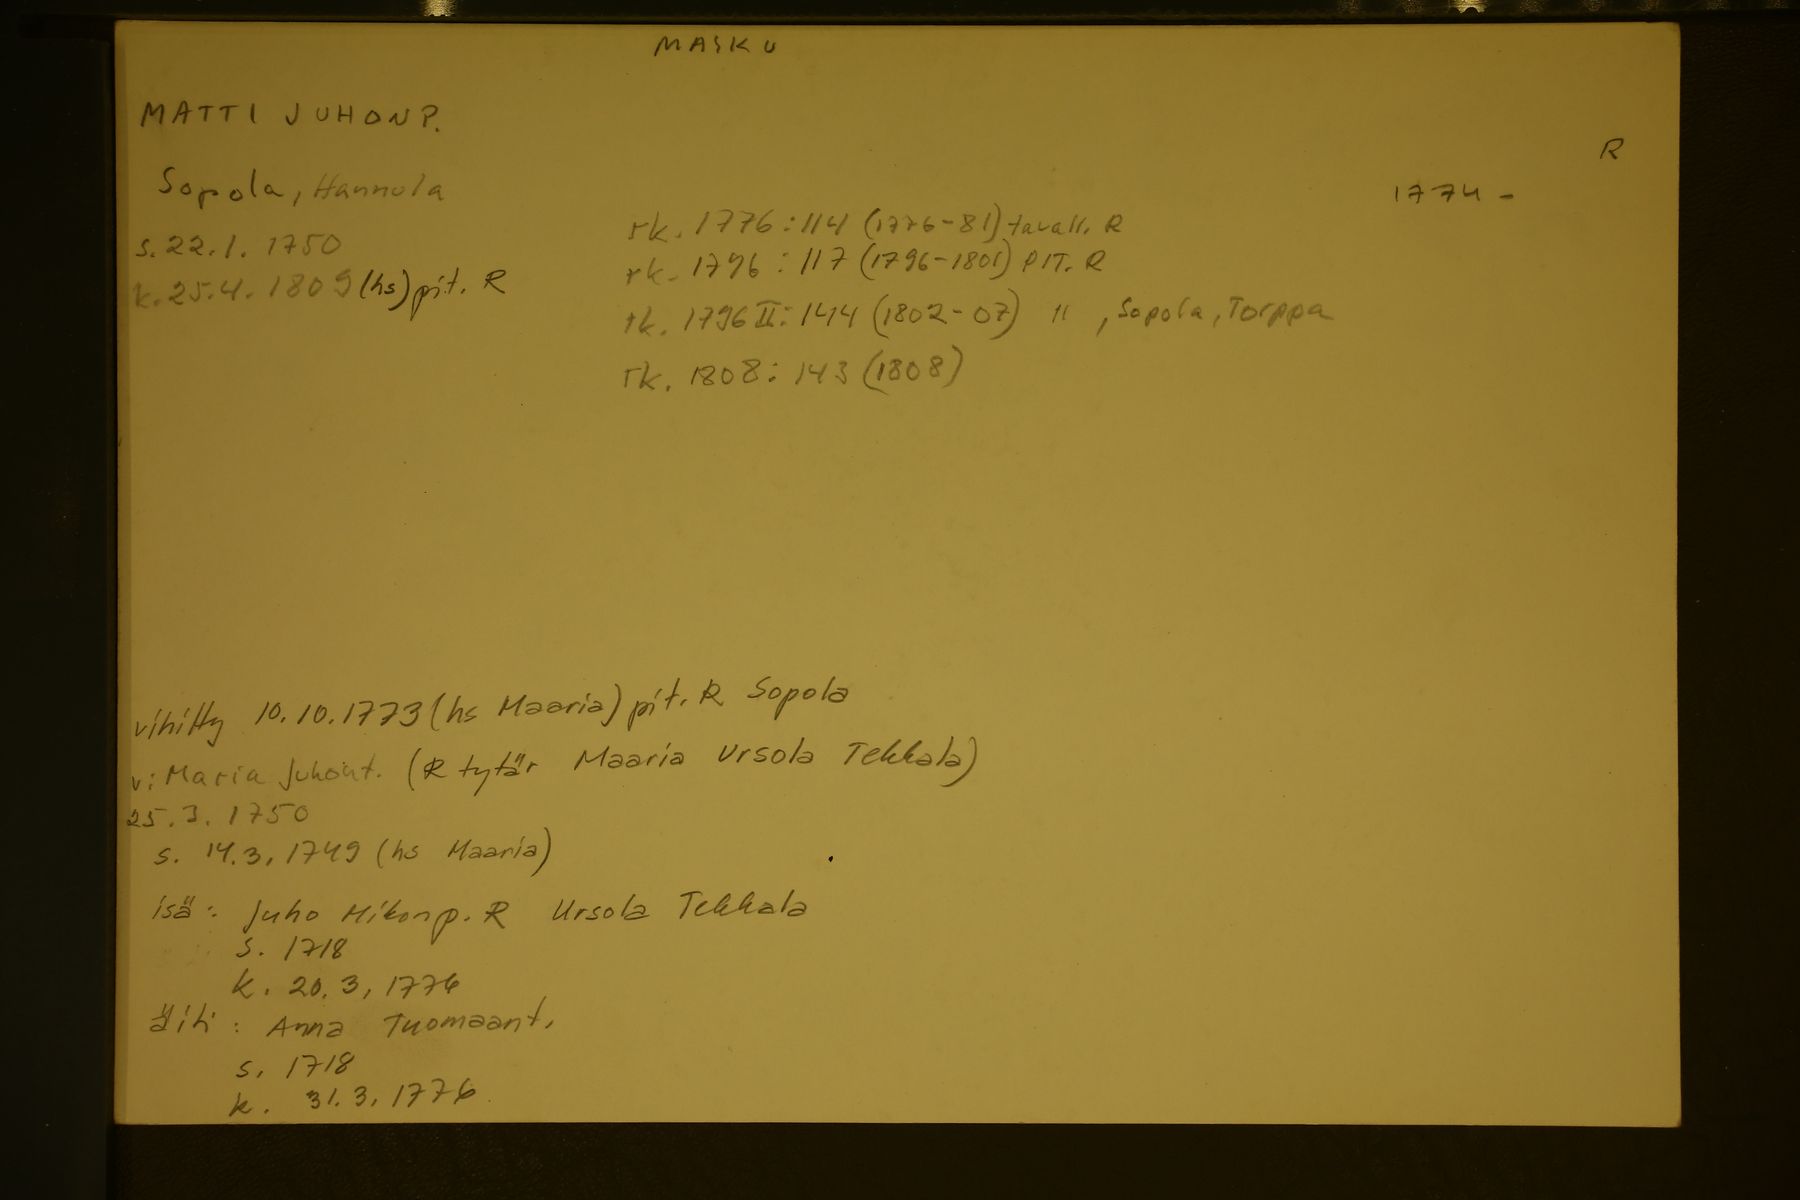 MASKU
MATTI JUHONP.
R
Sopola, Hannula
1774 -
s. 22.1. 1750
k. 25.4. 1809 (hs) pit. R
rk. 1776 : 114 (1776-81) tavall. R
rk. 1796 : 117 (1796-1801) PIT. R
rk. 1796 II: 144 (1802-07) " , Sopola, Torppa
rk. 1808: 143 (1808)
vihitty 10.10.1773 (hs Maaria) pit. R Sopola
v: Maria Juhont. (R tytär Maaria Ursola Tekkala)
25.3. 1750
s. 14.3, 1749 (hs Maaria)
isä: Juho Mikonp. R Ursola Tekkala
s. 1718
k. 20.3, 1776
Äiti : Anna Tuomaant.
s. 1718
k. 31.3, 1776